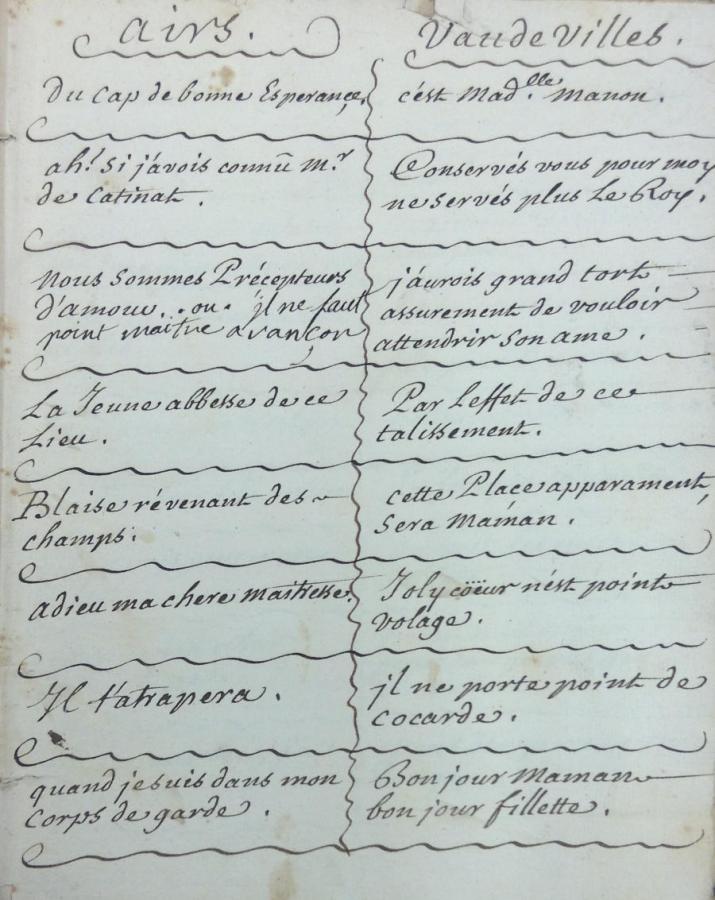 airs.
Vaudevilles.
Du Cap de bonne Esperançe,
c'ést Mad.lle manon.
ah! si j'avois connû m.r
de Catinat.
Conservés vous pour moy
ne servés plus Le Roy.
nous sommes Précepteurs
d'amour.. ou. jl ne faut
point maitre avancor
j'áurois grand tort
assurement de vouloir
attendrir son ame.
La Jeune abbesse de ce
Lieu.
Par L'effet de ce
talissement.
Blaise révenant des
champs.
cette Place apparament,
Sera Maman.
adieu ma chere maitresse.
Joly cöëur n'ést point
volage.
Il t'atrapera.
jl ne porte point de
cocarde.
quand je suis dans mon
Corps de garde.
Bon jour Maman
bon jour fillette.